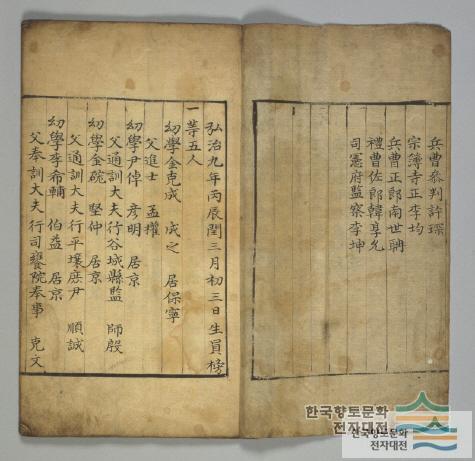 兵曹參判許琛
宗簿寺正李均
兵曹正郎南世聃
禮曹佐郎韓亨允
司憲府監察李坤
弘治九年丙辰閏三月初三日生員榜
一等五人
幼學金克成 成之 居保寧
父進士 孟權
幼學尹倬 彦明 居京
父通訓大夫行谷城縣監 師殷
幼學金硡 堅仲 居京
父通訓大夫行平壤庶尹 順誠
幼學李希輔 伯益 居京
父奉訓大夫行司饔院奉事 克文
한국향토문화
전자대전
한국향토문화
전자대전